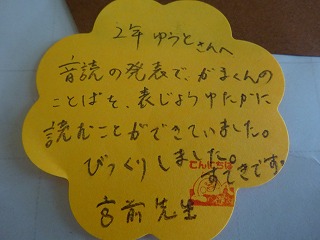 2年 ゆうとさんへ
音読の発表で、がまくんの
ことばを、表じょうゆたかに
読むことができていました。
びっくりしました。
すてきです。
宮前先生